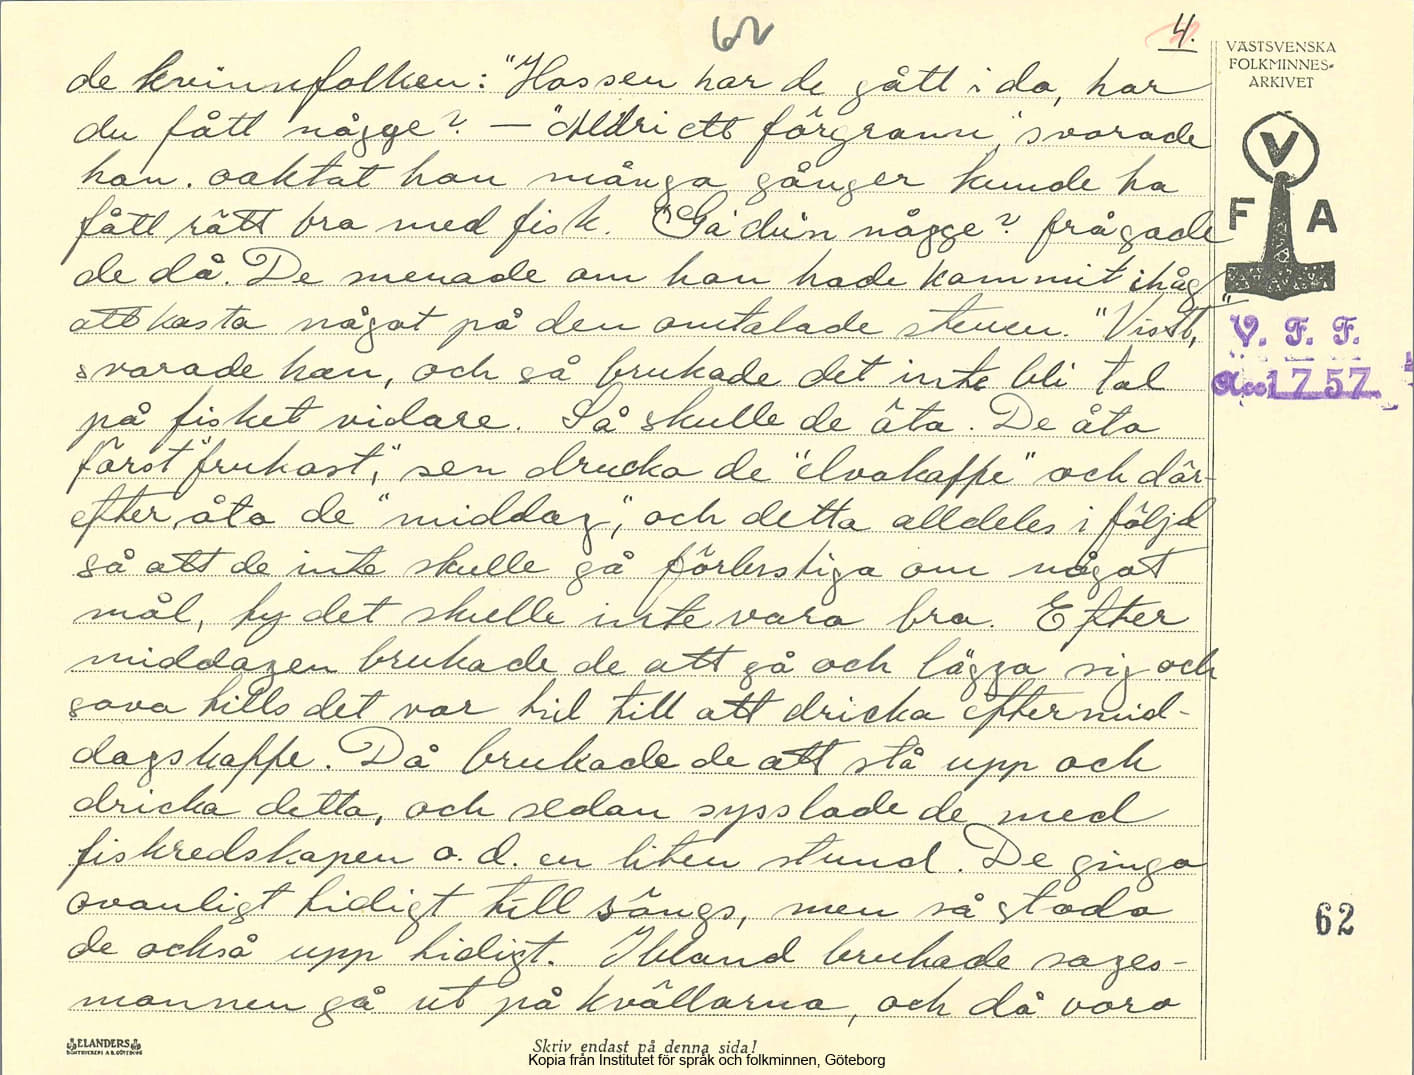 62
4.
VÄSTSVENSKA
FOLKMINNES-
ARKIVET
V
F A
V. F. F.
Acc 1757
de kvinnfolken: "Hossen har de gått i da, har
du fått någge? — "Aldri ett förgrann," svarade
han. oaktat han många gånger kunde ha
fått rätt bra med fisk. "Ga dun någge? frågade
de då. De menade om han hade kommit ihåg
att kasta något på den omtalade stenen. "Visst,"
svarade han, och så brukade det inte bli tal
på fisket vidare. Så skulle de äta. De åto
först "frukost," sen drucko de "elvakaffe" och där-
efter åto de "middag", och detta alldeles i följd
så att de inte skulle gå förlustiga om något
mål, ty det skulle inte vara bra. Efter
middagen brukade de att gå och lägga sig och
sova tills det var tid till att dricka eftermid-
dagskaffe. Då brukade de att stå upp och
dricka detta, och sedan sysslade de med
fiskredskapen o. d. en liten stund. De gingo
ovanligt tidigt till sängs, men så stodo
de också upp tidigt. Ibland brukade sages-
mannen gå ut på kvällarna, och då voro
62
ELANDERS
BOKTRYCKERI A.B. GÖTEBORG
Skriv endast på denna sida!
Kopia från Institutet för språk och folkminnen, Göteborg